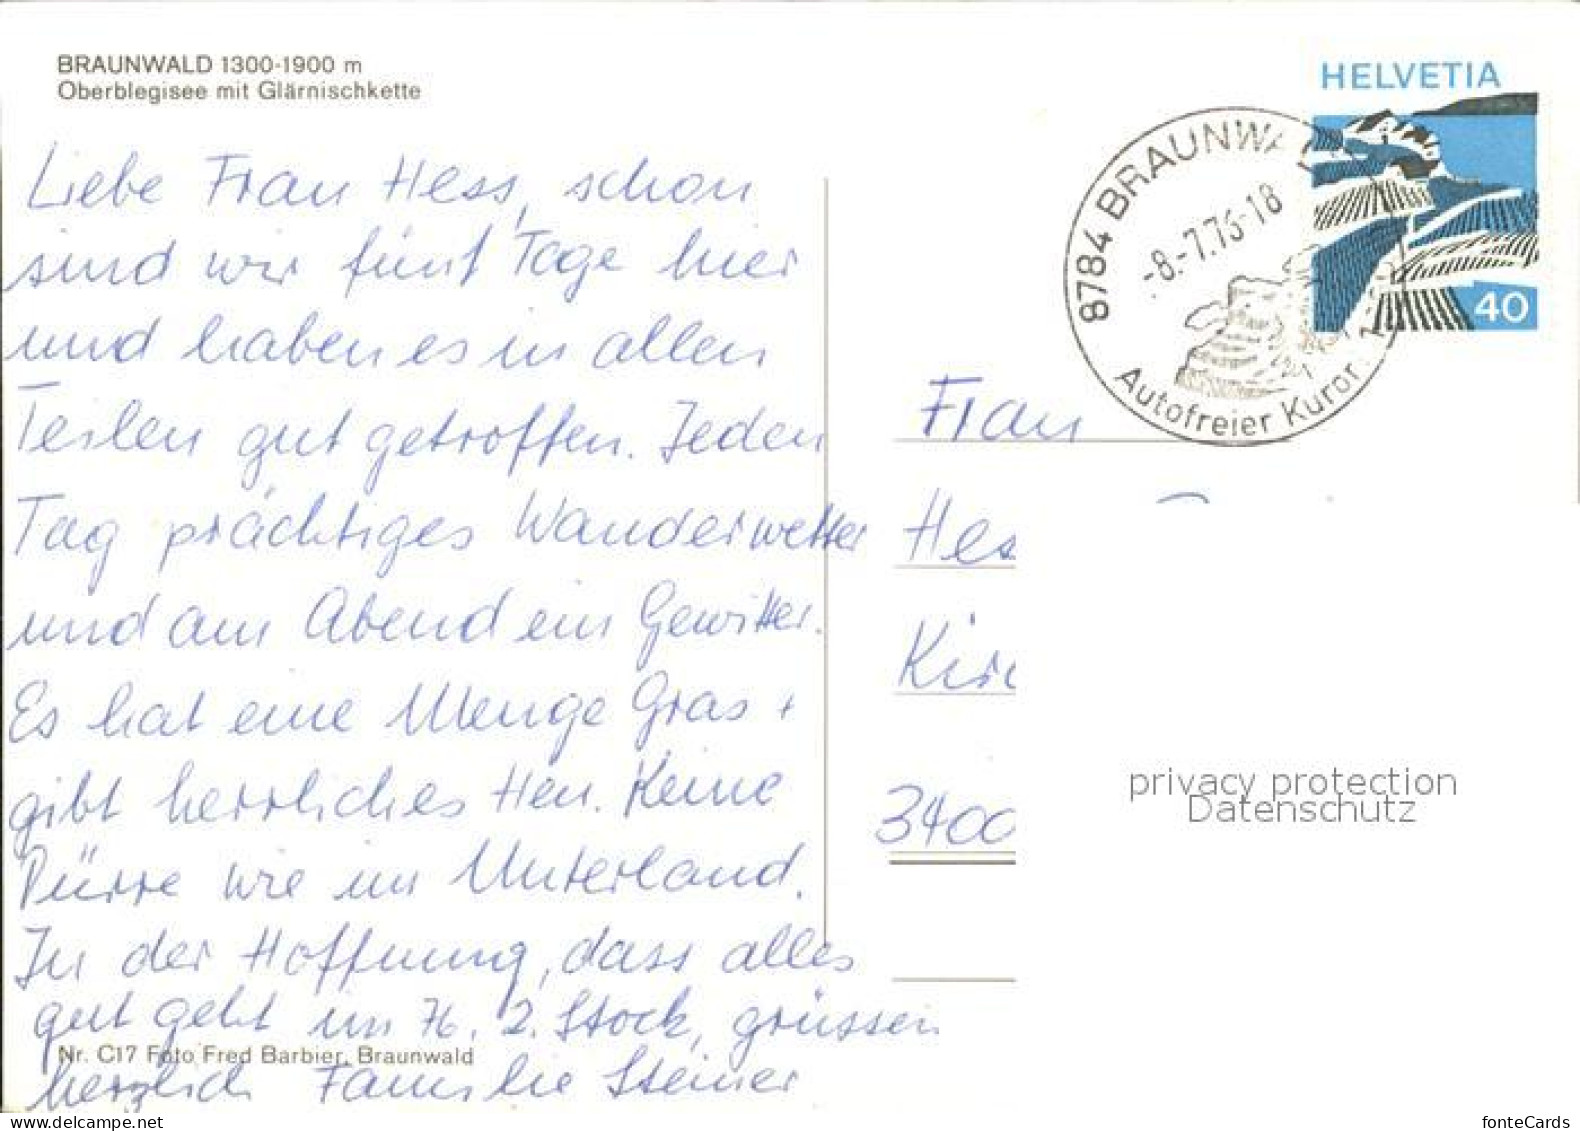 BRAUNWALD 1300-1900 m
Oberblegisee mit Glärnischkette
HELVETIA
40
8784 BRAUNWALD
-8.-7.76-18
Autofreier Kuror
Liebe Frau Hess, schon
sind wir fünf Tage hier
und haben es in allen
Teilen gut getroffen. Jeden
Tag prächtiges Wanderwetter
und am Abend ein Gewitter.
Es hat eine Menge Gras +
gibt herrliches Heu. Keine
Dürre wie im Unterland.
In der Hoffnung, dass alles
gut geht im 76. 2. Stock, grüssen
herzlich Familie Steiner
Nr. C17 Foto Fred Barbier, Braunwald
Frau
Hes
Kirc
3400
privacy protection
Datenschutz
www.delcampe.net
fonteCards